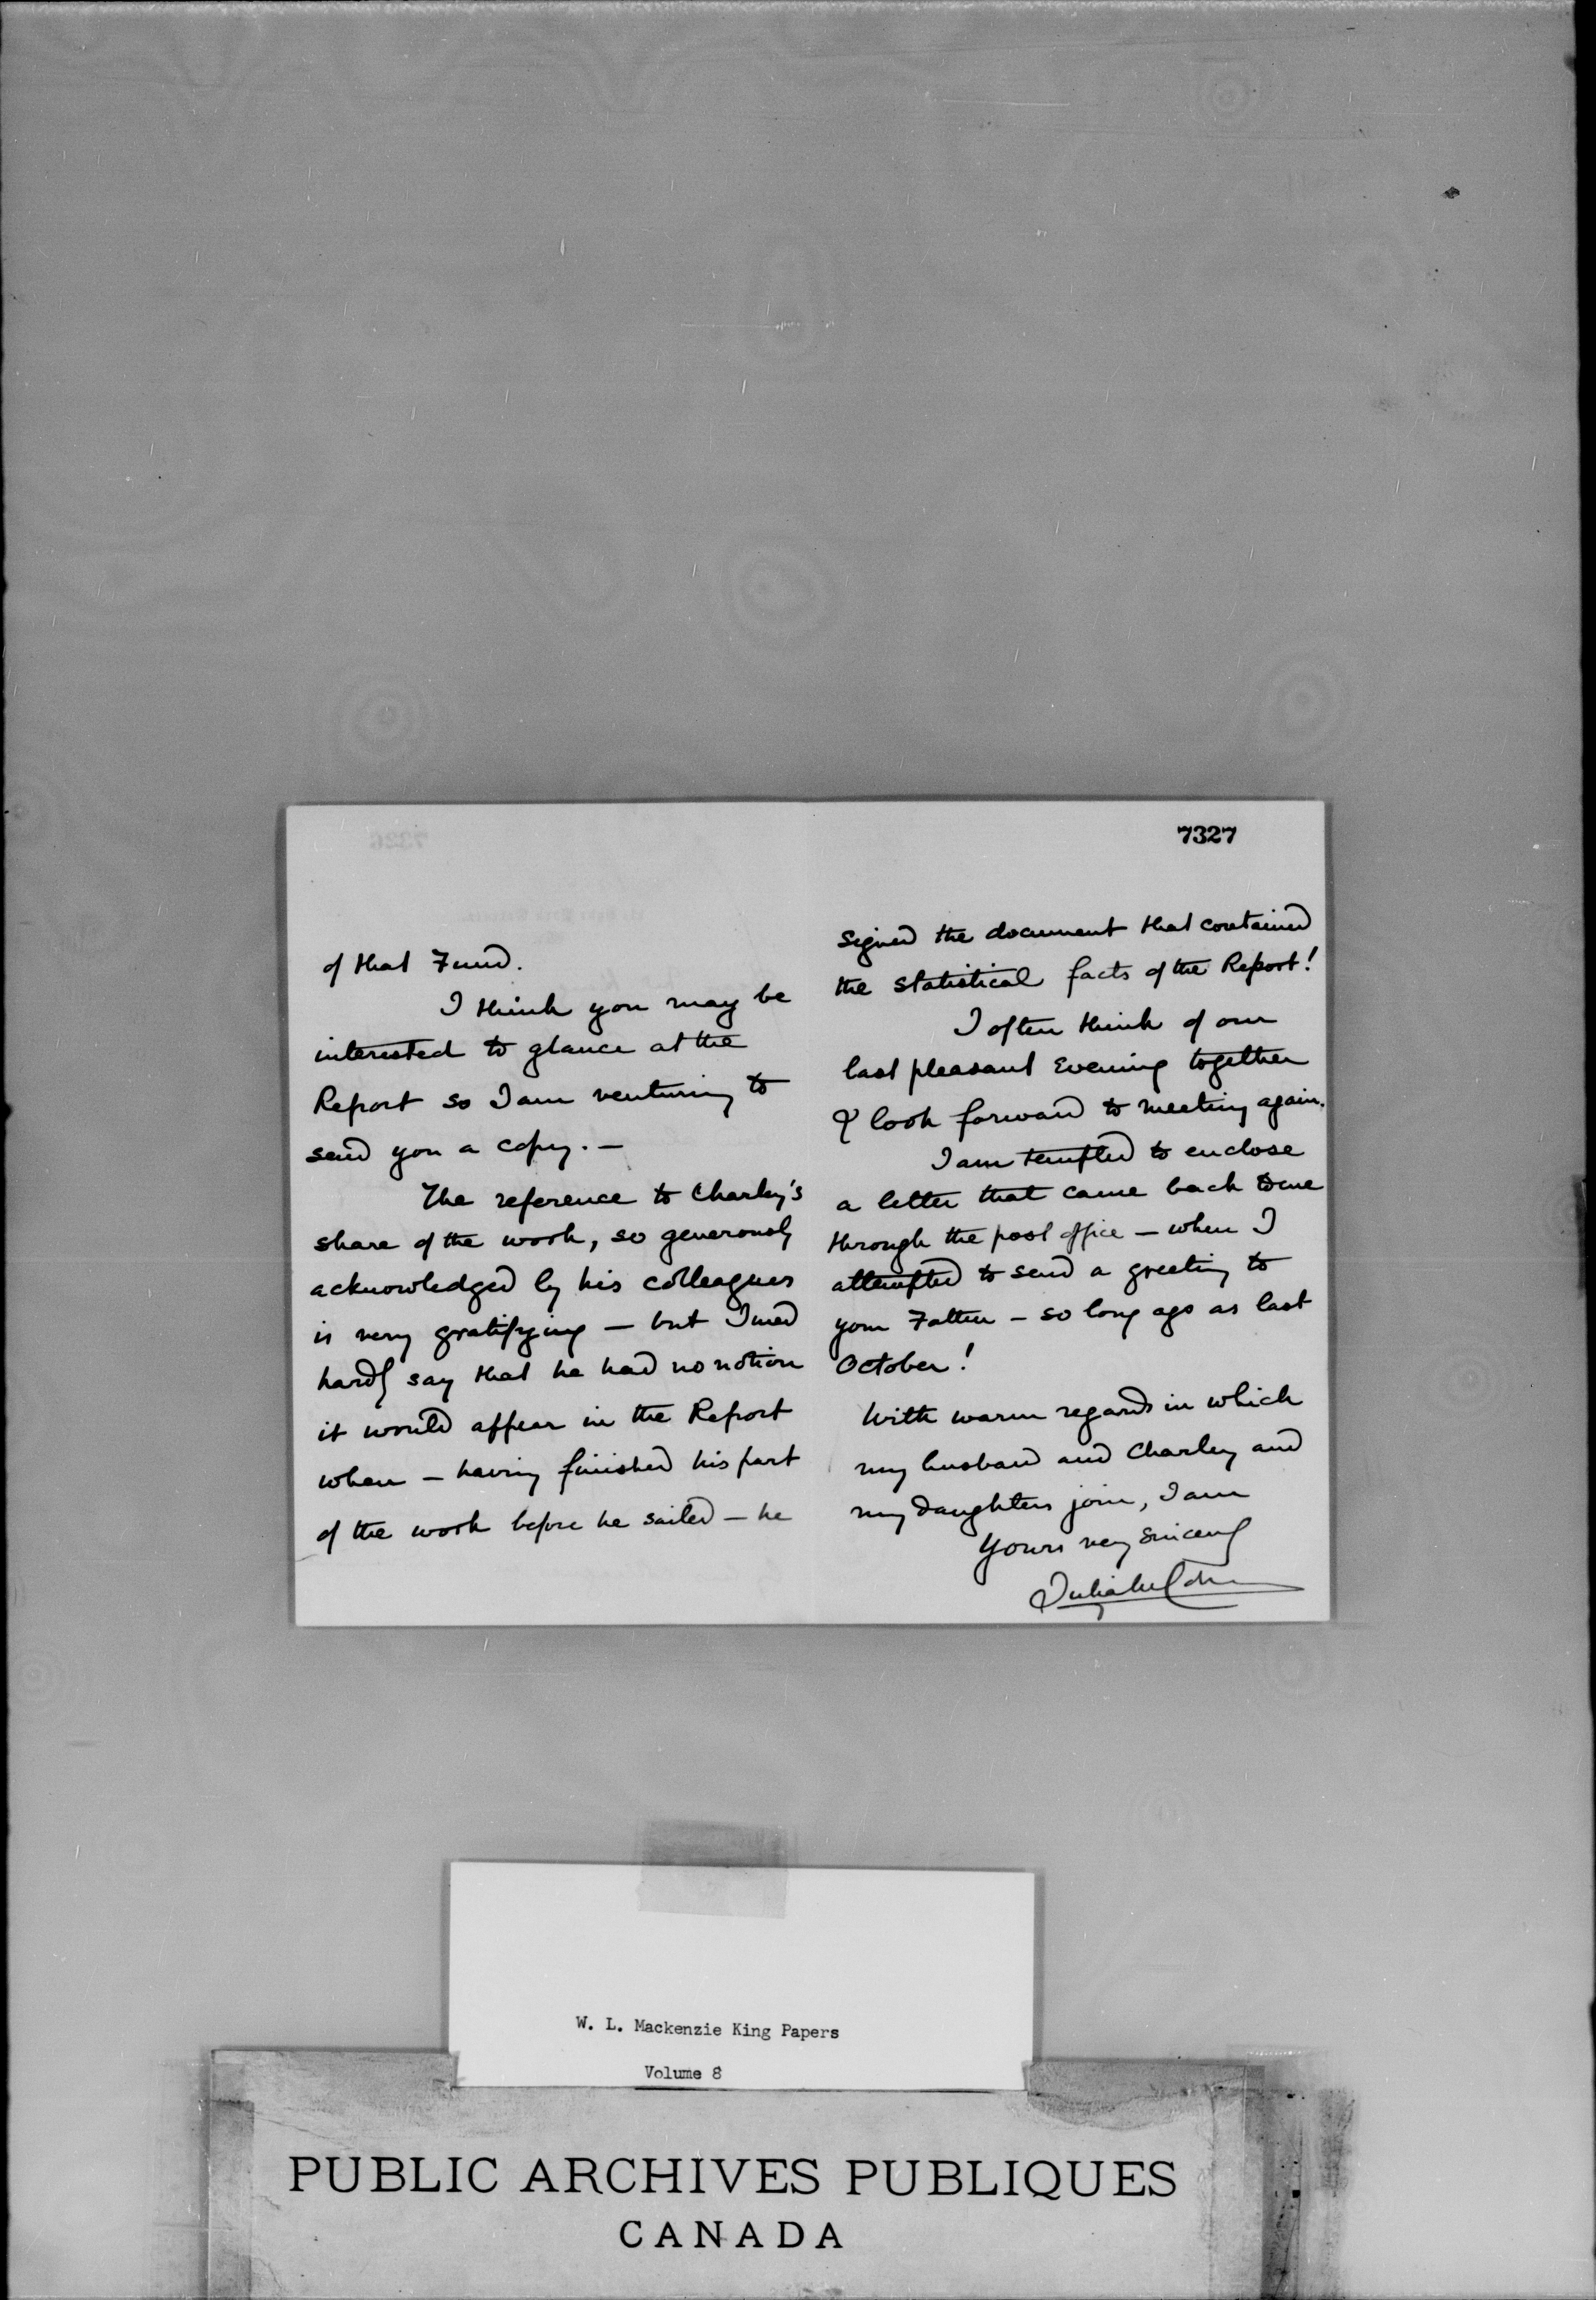 7327
of that Fund.
I think you may be
interested to glance at the
Report so I am venturing to
send you a copy. —
The reference to Charley's
share of the work, so generously
acknowledged by his colleagues
is very gratifying — but I need
hardly say that he had no notion
it would appear in the Report
when — having finished his part
of the work before he sailed — he
signed the document that contained
the statistical facts of the Report!
I often think of our
last pleasant Evening together
& look forward to meeting again.
I am tempted to enclose
a letter that came back to me
through the post office — when I
attempted to send a greeting to
your Father — so long ago as last
October!
With warm regards in which
my husband and Charley and
my daughters join, I am
Yours very sincerely
W. L. Mackenzie King Papers
Volume 8
PUBLIC ARCHIVES PUBLIQUES
CANADA